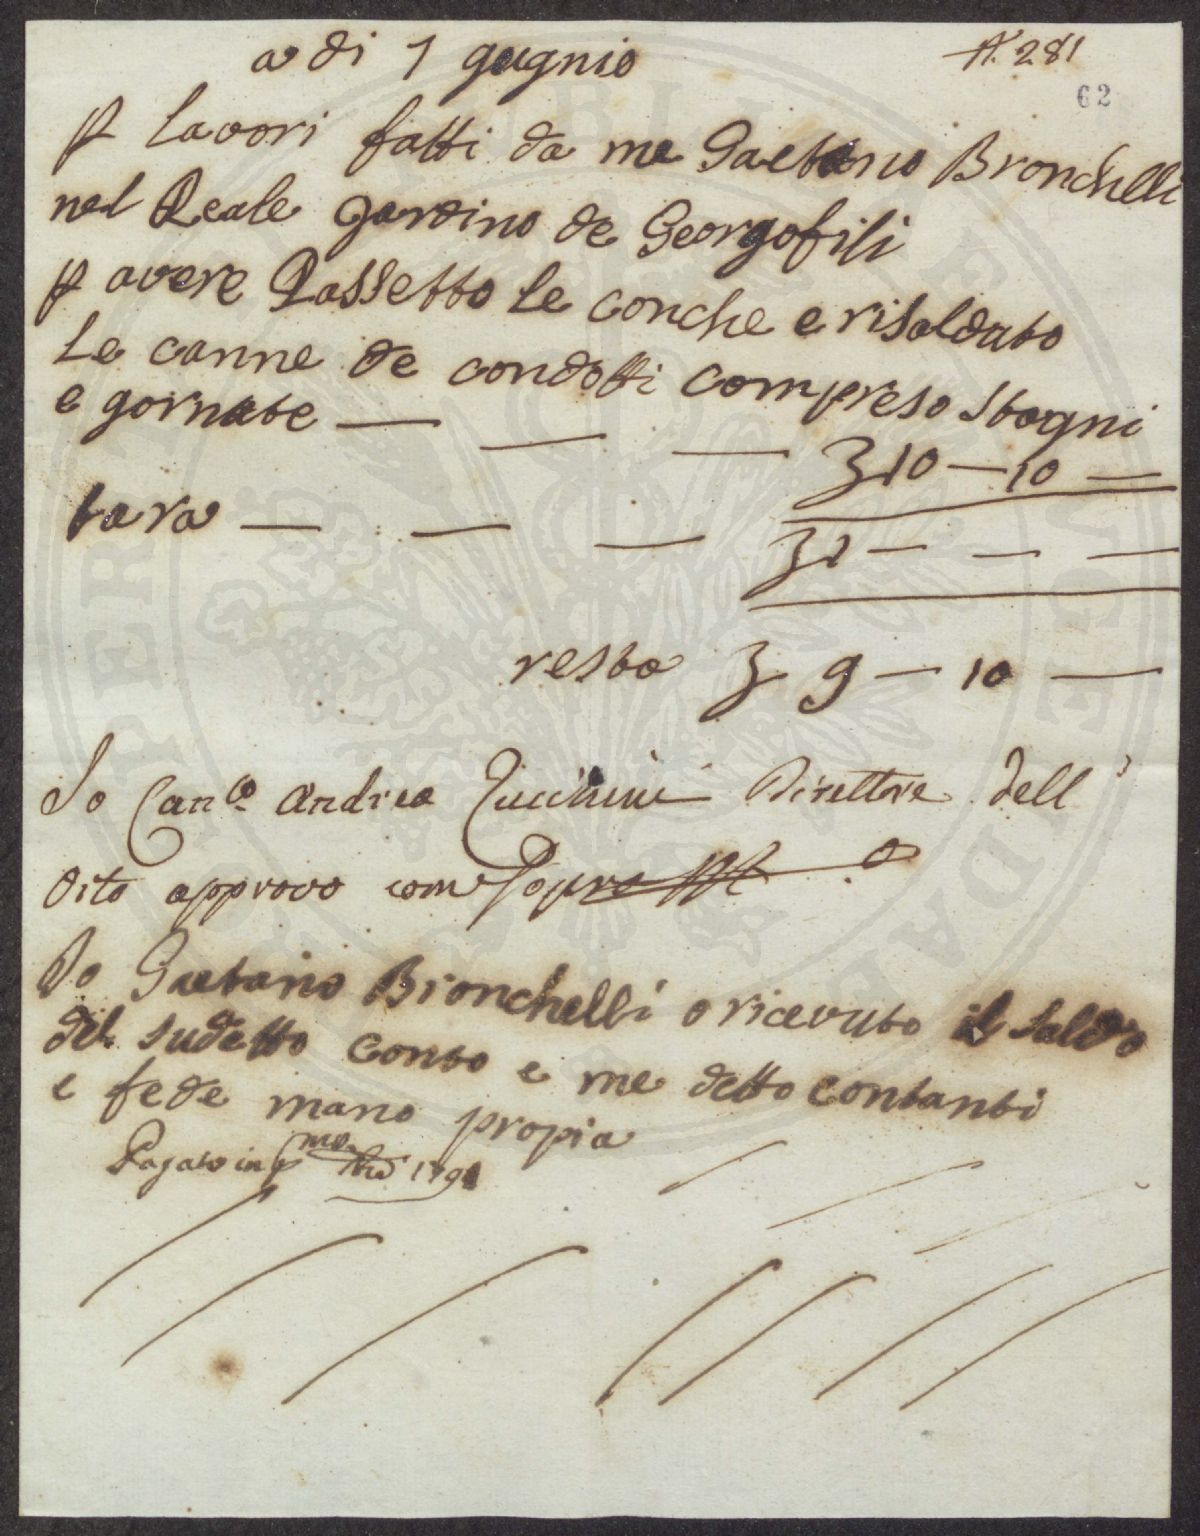 a di 1 gugnio
N. 281
62
p lavori fatti da me Gaetano Bronchelli
nel Reale gardino de Georgofili
p avere Rassetto le conche e risaldato
Le canne de condotti compreso stagni
e gornate — — — 10 — 10 —
tara — — — 1 — — —
resta 9 — 10 —
Io Can.co Andrea Zucchini Direttore dell'
Orto approvo come sopra
Io Gaetano Bronchelli o ricevuto il saldo
del sudetto conto e me detto contanti
e fede mano propia
Pagato in 1791